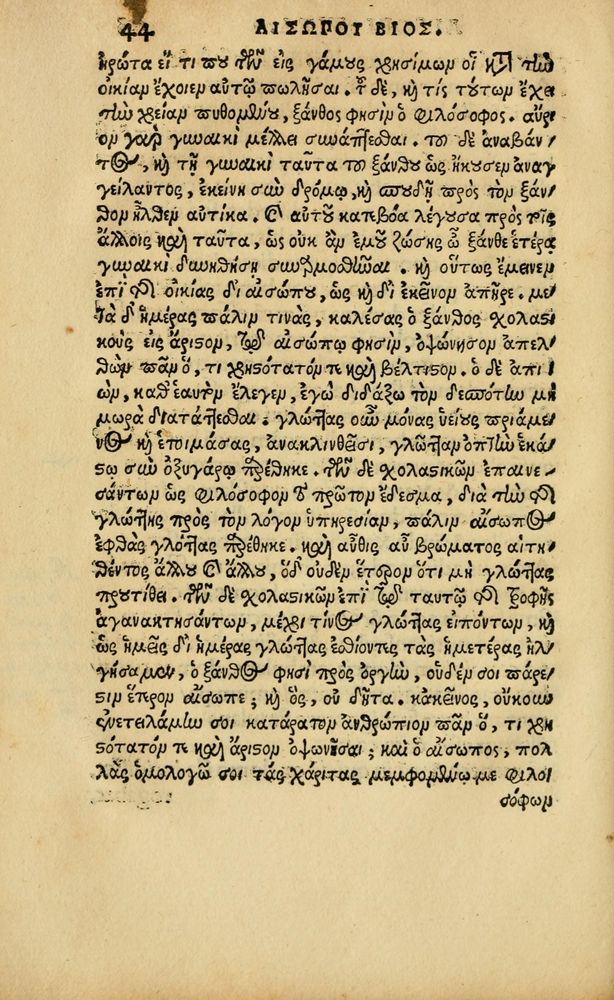 44 ΑΙΣΩΠΟΥ ΒΙΟΣ.
ηρώτα εἴ τι που τῶν εἰς γάμους χρησίμων οἱ κατὰ τὴν
οἰκίαν ἔχοιεν αὐτῷ πωλῆσαι. τοῦ δὲ, καὶ τίς τούτων ἔχει
τὴν χρείαν πυθομένου, ξάνθος φησὶν ὁ φιλόσοφος. αὔρι
ον γὰρ γυναικὶ μέλλει συνάπτεσθαι. τοῦ δὲ ἀναβάν
τος, καὶ τῇ γυναικὶ ταῦτα τοῦ ξάνθου ὡς ἤκουσεν ἀναγ
γείλαντος, ἐκείνη σὺν δρόμῳ, καὶ σπουδῇ πρὸς τὸν ξάν
θον ἦλθεν αὐτίκα. καὶ αὐτοῦ κατεβόα λέγουσα πρὸς τοῖς
ἄλλοις καὶ ταῦτα, ὡς οὐκ ἂν ἐμοῦ ζώσης ὦ ξάνθε ἑτέρᾳ
γυναικὶ δυνηθήσῃ συναρμοσθῆναι. καὶ οὕτως ἔμεινεν
ἐπὶ τῆς οἰκίας δι αἰσώπου, ὡς καὶ δι ἐκεῖνον ἀπῆρε. με
τὰ δ' ἡμέρας πάλιν τινὰς, καλέσας ὁ ξάνθος σχολαστι
κοὺς εἰς ἄριστον, τῷ αἰσώπῳ φησὶν, ὀψώνησον ἀπελ
θὼν πᾶν ὅ, τι χρηστότατόν τε καὶ βέλτιστον. ὁ δὲ ἀπι
ὼν, καθ' ἑαυτὸν ἔλεγεν, ἐγὼ διδάξω τὸν δεσπότην μὴ
μωρὰ διατάττεσθαι. γλώττας οὖν μόνας ὑείους πριάμε
νος καὶ ἑτοιμάσας, ἀνακλινθεῖσι, γλῶτταν ὀπτὴν ἑκά
στῳ σὺν ὀξυγάρῳ παρέθηκε. τῶν δὲ σχολαστικῶν ἐπαινε
σάντων ὡς φιλόσοφον τὸ πρῶτον ἔδεσμα, διὰ τὴν τῆς
γλώττης πρὸς τὸν λόγον ὑπηρεσίαν, πάλιν αἴσωπος
ἑφθὰς γλόττας παρέθηκε. καὶ αὖθις αὖ βρώματος αἰτη
θέντος ἄλλου καὶ ἄλλου, ὅδ' οὐδὲν ἕτερον ὅτι μὴ γλώττας
προυτίθει. τῶν δὲ σχολαστικῶν ἐπὶ τῷ ταυτῷ τῆς τροφῆς
ἀγανακτησάντων, μέχρι τίνος γλώττας εἰπόντων, καὶ
ὡς ἡμεῖς δι ἡμέρας γλώττας ἐσθίοντες τὰς ἡμετέρας ἠλ
γήσαμεν, ὁ ξάνθος φησὶ πρὸς ὀργὴν, οὐδέν σοι πάρε
στιν ἕτερον αἴσωπε; καὶ ὃς, οὐ δῆτα. κἀκεῖνος, οὔκουν
ἐνετειλάμην σοι κατάρατον ἀνθρώπιον πᾶν ὅ, τι χρη
στότατόν τε καὶ ἄριστον ὀψωνῆσαι; καὶ ὁ αἴσωπος, πολ
λὰς ὁμολογῶ σοι τὰς χάριτας μεμφομένῳ με φιλοσ
σόφων